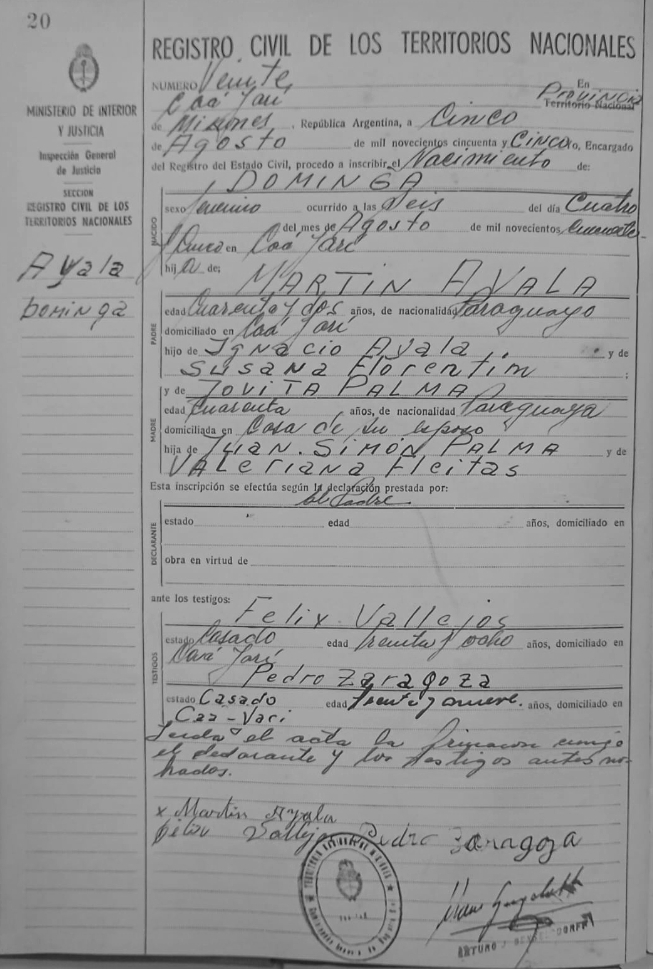 20
MINISTERIO DE INTERIOR
Y JUSTICIA
Inspección General
de Justicia
SECCION
REGISTRO CIVIL DE LOS
TERRITORIOS NACIONALES
Ayala
Dominga
REGISTRO CIVIL DE LOS TERRITORIOS NACIONALES
NUMERO Veinte, En Provincia
Caá Yarí Territorio Nacional
de Misiones, República Argentina, a Cinco
de Agosto de mil novecientos cincuenta y CINCO, Encargado
del Registro del Estado Civil, procedo a inscribir el Nacimiento de:
DOMINGA
NACIDO
sexo femenino ocurrido a las Seis del día Cuatro
del mes de Agosto de mil novecientos cincuenta
y Cinco en Caá Yarí
hija de:
MARTIN AYALA
PADRE
edad Cuarenta y dos años, de nacionalidad Paraguayo
domiciliado en Caá Yarí
hijo de Ignacio Ayala y de
Susana Florentim ;
y de JOVITA PALMA
MADRE
edad Cuarenta años, de nacionalidad Paraguaya
domiciliada en Casa de su esposo
hija de Juan Simón PALMA y de
VALeriana Fleitas
Esta inscripción se efectúa según la declaración prestada por:
el Padre
DECLARANTE
estado edad años, domiciliado en
obra en virtud de
ante los testigos:
Felix Vallejos
TESTIGOS
estado Casado edad treinta y ocho años, domiciliado en
Caá Yarí
Pedro Zaragoza
estado Casado edad treinta y nueve. años, domiciliado en
Caa-Yari
Leida el acta la firmaron conmigo
el declarante y los testigos antes nom-
brados.
x Martin Ayala
Felix Vallejos Pedro Zaragoza
ARTURO J.